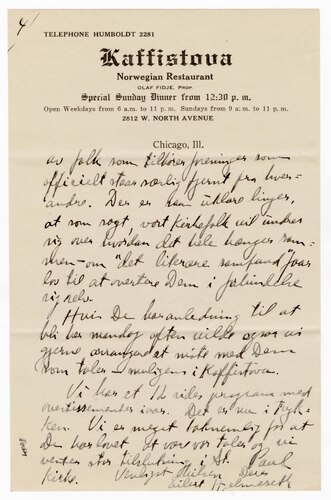 4
TELEPHONE HUMBOLDT 2281
Kaffistova
Norwegian Restaurant
OLAF FIDJE, PROP.
Special Sunday Dinner from 12:30 p. m.
Open Weekdays from 6 a.m. to 11 p. m. Sundays from 9 a. m. to 11 p. m.
2812 W. NORTH AVENUE
Chicago, Ill.
av folk som tilhører foreninger som
officielt staar særlig fjernt fra hver-
andre. Der er saa uklare linjer,
at som sagt, vort kirkefolk vil undres
sig over hvordan det hele hænger sam-
men - om "det literære samfund" faar
lov til at avertere Dem i forbindelse
sig selv.
Hvis De har anledning til at
bli her mandag aften vilde ogsaa vi
gjerne arrangere et møte med Dem
som taler - muligens i Kaffistova.
Vi har et 12 siders program med
avertissementer i aar. Det er nu i tryk-
ken. Vi er meget taknemlig for at
De har lovet at være vor taler og vi
venter stor tilslutning i St. Paul
kirke. Venligst hilsen, Deres